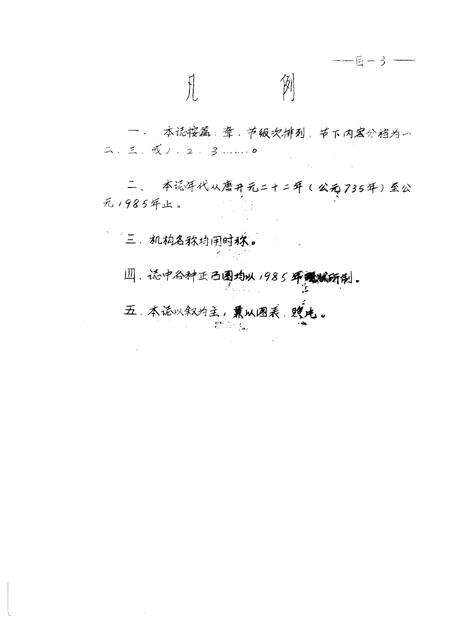 —目—3—
凡 例
一、本志按篇、章、节级次排列，节下内容分档为一
二、三、或1.2.3……。
二、本志年代从唐开元二十二年（公元735年）至公
元1985年止。
三、机构名称均用时称。
四、志中各种 图均以1985年 所制。
五、本志以叙为主，兼以图表、照 。